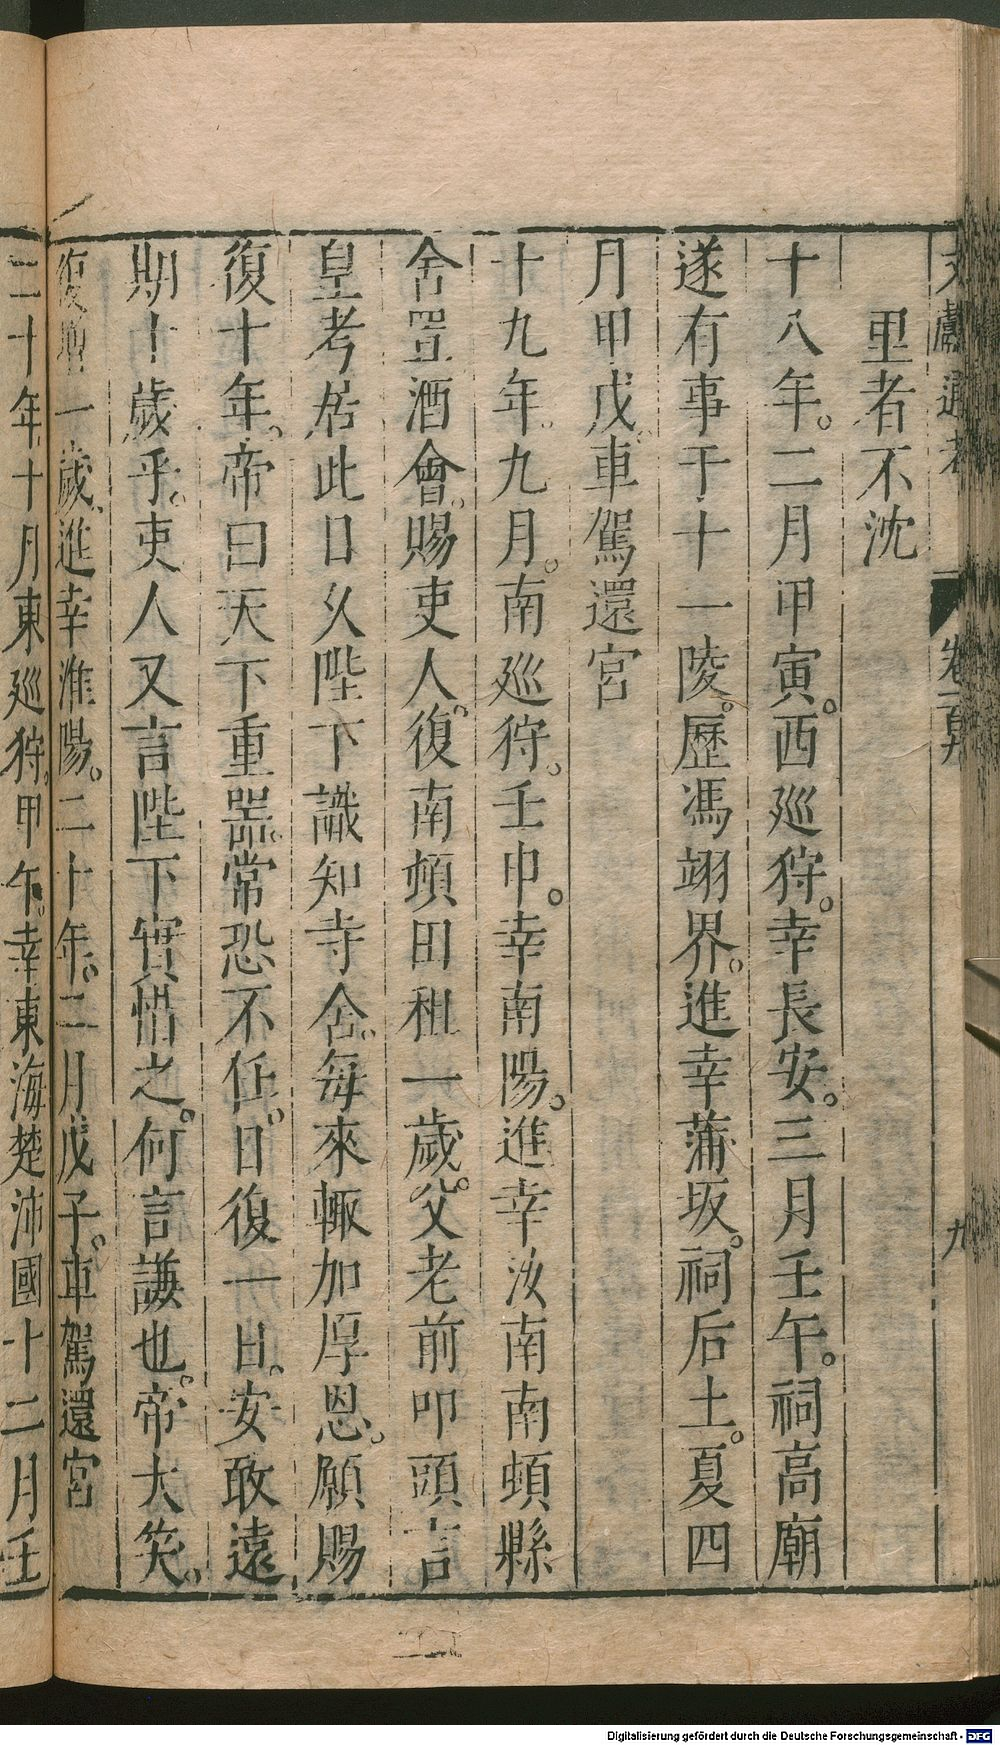 文獻通考 卷一百九 九
里者不沈
十八年。二月甲寅。西廵狩。幸長安。三月壬午。祠高廟
遂有事于十一陵。歷馮翊界。進幸蒲坂。祠后土。夏四
月甲戊。車駕還宮
十九年。九月。南廵狩。壬申。幸南陽。進幸汝南南頓縣
舍置酒會。賜吏人。復南頓田租一歲。父老前叩頭言
皇考居此日乆陛下識知寺舍。每來輙加厚恩。願賜
復十年。帝曰天下重噐。常恐不任。日復一日。安敢遠
期十歲乎。吏人又言陛下實惜之。何言謙也。帝大笑。
復增一歲。進幸淮陽。二十年。二月戊子。車駕還宮
二十年十月東廵狩。甲午。幸東海楚沛國十二月壬
Digitalisierung gefördert durch die Deutsche Forschungsgemeinschaft - DFG